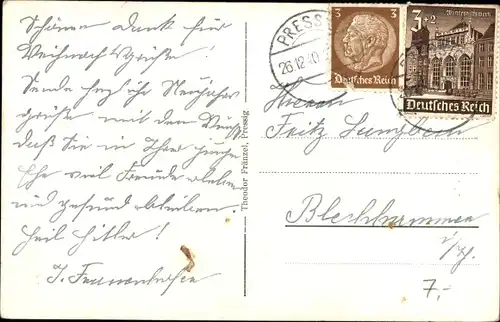 Schönen Dank für
Weihnachtsgrüße!
Sende herzlich Neujahrs
grüße mit dem Wunsch
daß Sie in Ihrer jungen
Ehe viel Freude erleben
und gesund bleiben.
Heil Hitler!
J. Frauenhofer
Theodor Fränzel, Pressig
PRESS
26.12.40
3
3
Deutsches Reich
3+2
Winterhilfswerk
Deutsches Reich
Herrn
Fritz
7,-